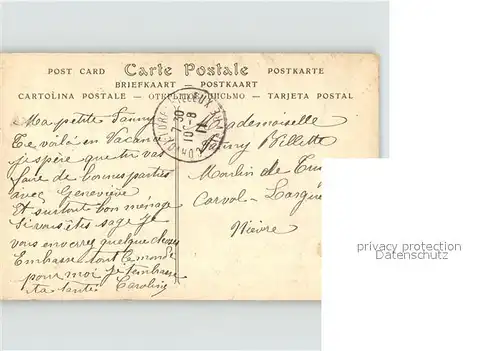 POST CARD Carte Postale POSTKARTE
BRIEFKAART — POSTKAART
CARTOLINA POSTALE — ОТКРЫТОЕ ПИСЬМО — TARJETA POSTAL
7 30
10 - 8
Ma petite Fanny
Te voilà en Vacance
j'espère que tu vas
faire de bonnes parties
avec Geneviève
Et surtout bon ménage
Si vous êtes sage je
vous enverrez quelque chose
Embrasse tout le monde
pour moi je t'embrasse
ta tante Caroline
Mademoiselle
Fanny Billette
Moulin de
Corvol - 
Nièvre
privacy protection
Datenschutz